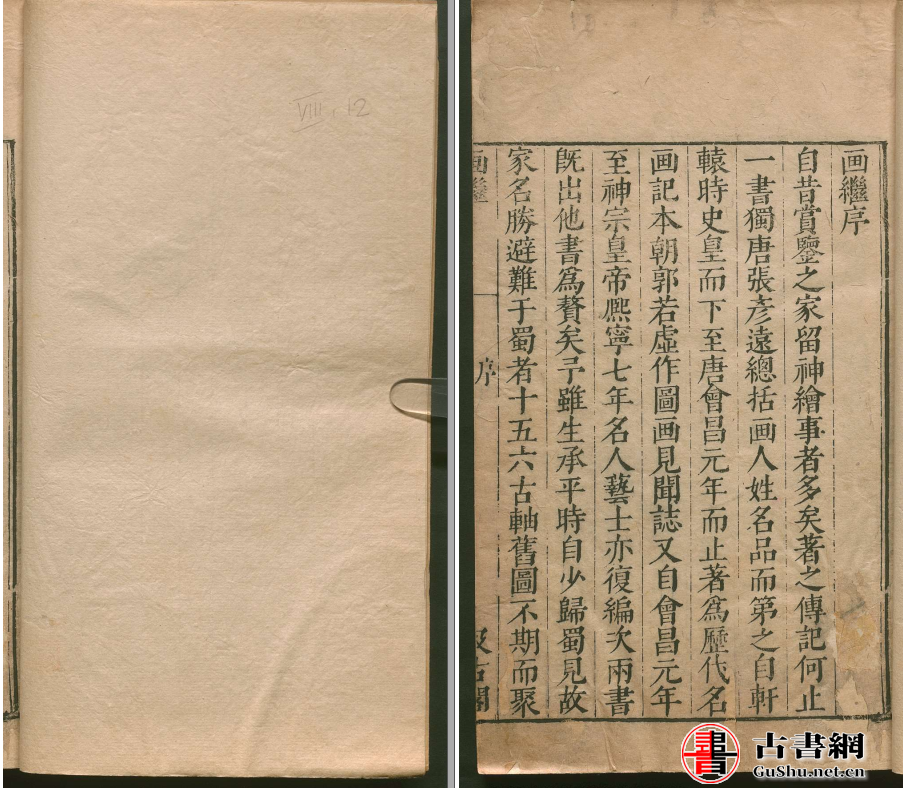 VIII.12
画繼序
自昔賞鑒之家留神繪事者多矣著之傳記何止
一書獨唐張彥遠總括画人姓名品而第之自軒
轅時史皇而下至唐會昌元年而止著爲歷代名
画記本朝郭若虛作圖画見聞誌又自會昌元年
至神宗皇帝熈寧七年名人藝士亦復編次兩書
既出他書爲贅矣予雖生承平時自少歸蜀見故
家名勝避難于蜀者十五六古軸舊圖不期而聚
画繼
序
汲古閣
古書網
GuShu.net.cn